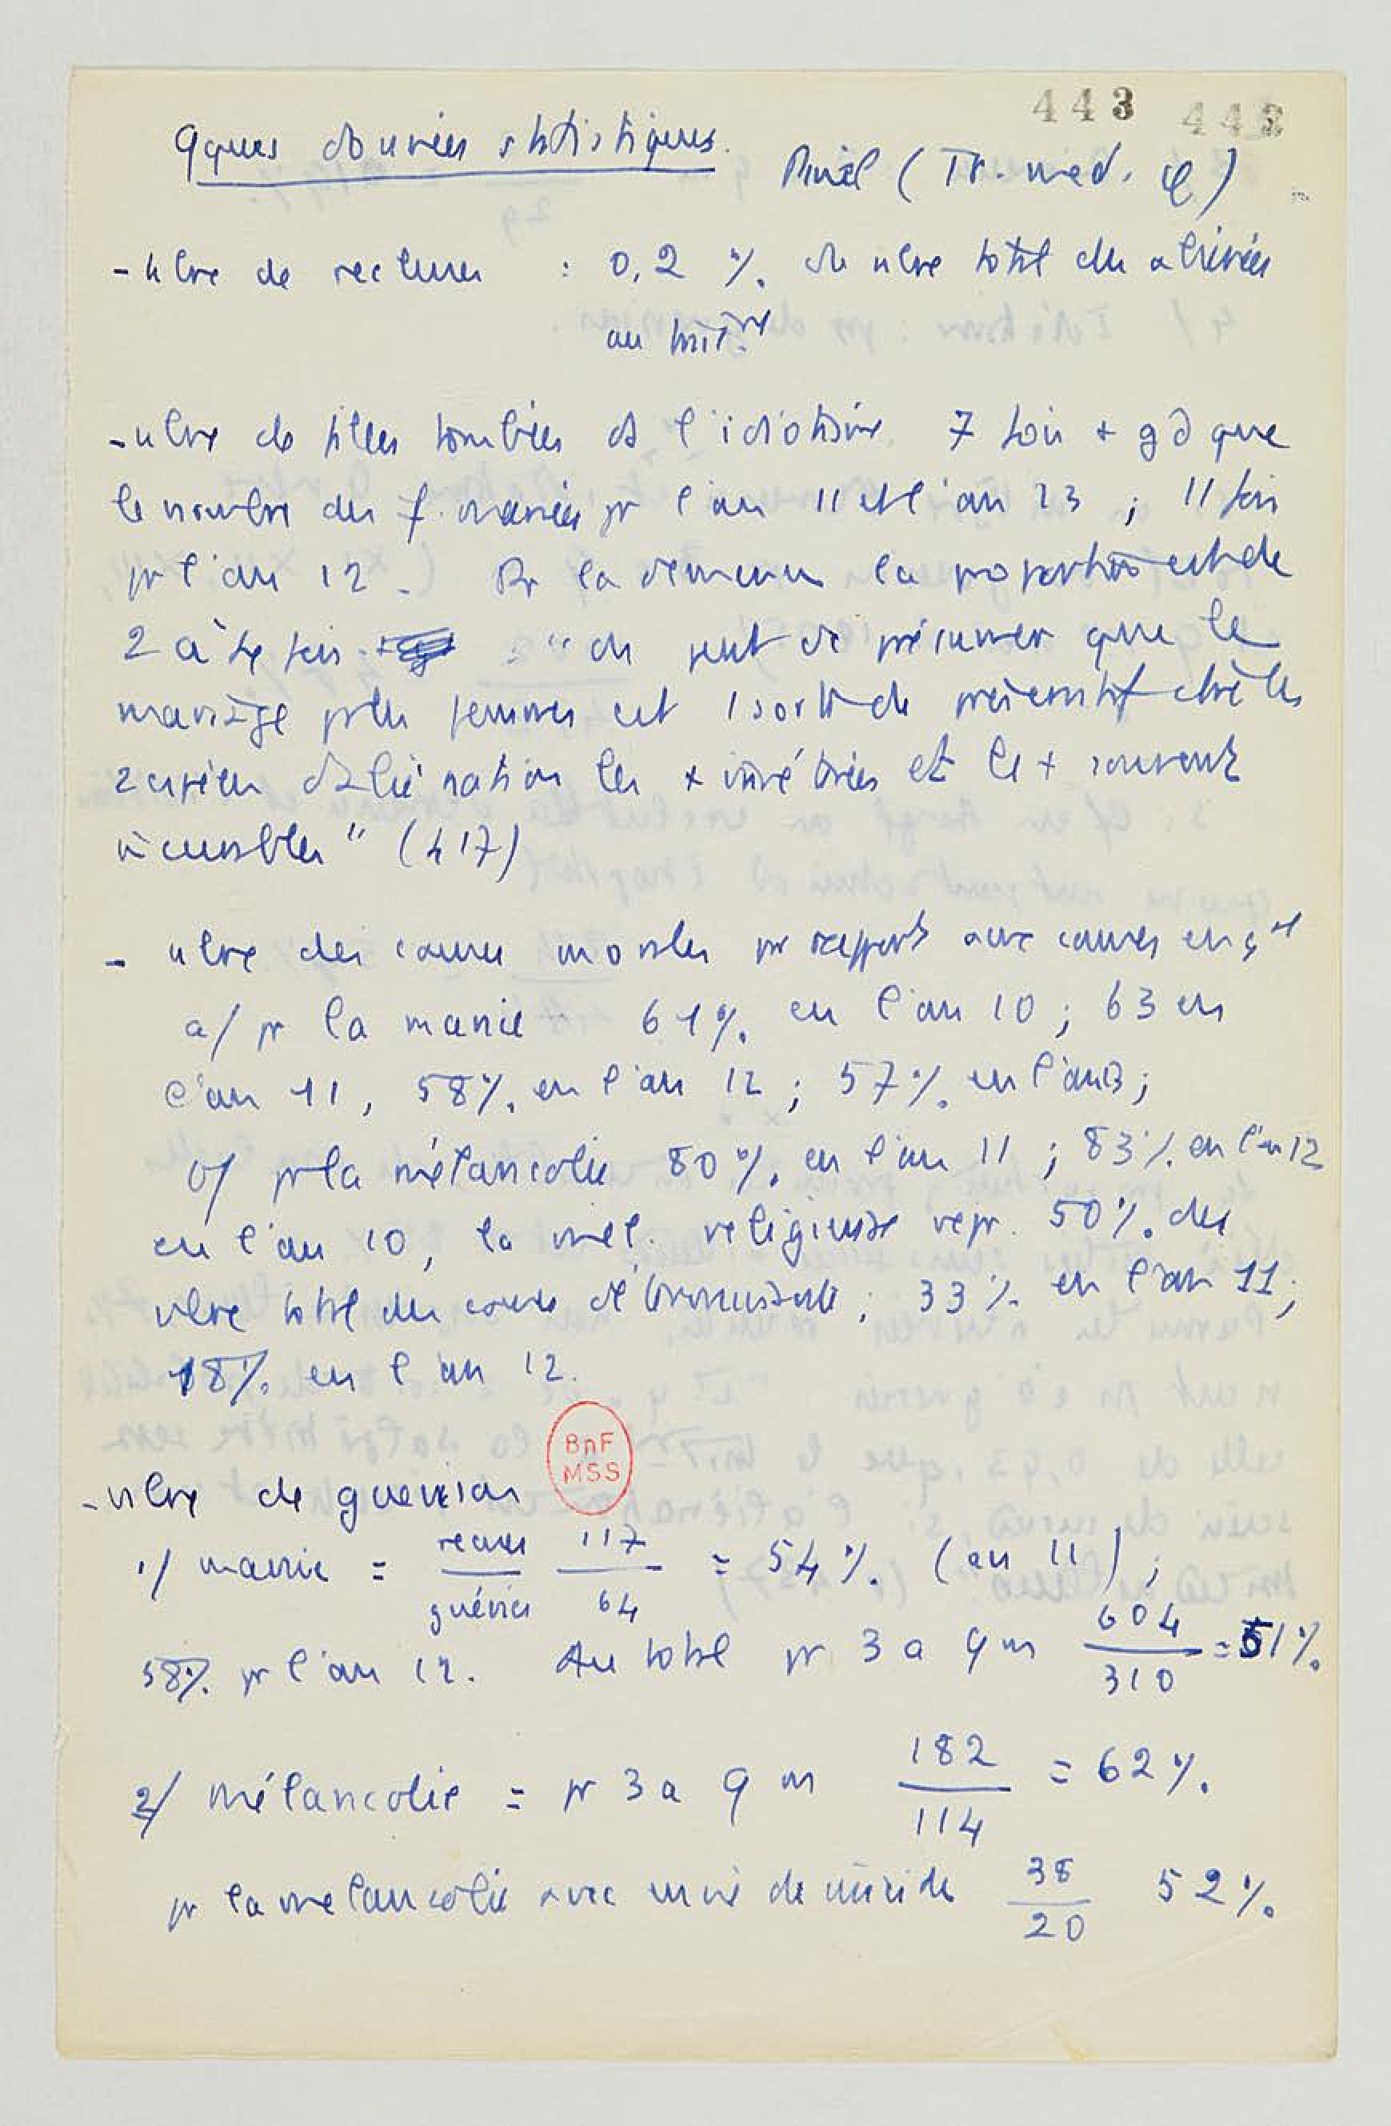 443 442
Qques données statistiques.
Pinel (Tr. med. φ)
- nbre de rechutes : 0,2 %. du nbre total des aliénées
au trait.nt
- nbre de filles tombées ds l'idiotisme 7 fois + gd que
le nombre des f. mariées pr l'an 11 et l'an 13 ; 11 fois
pr l'an 12. Pr la démence la proportion est de
2 à 4 fois. "on peut dc présumer que le
mariage pr les femmes est 1 sorte de préservatif ctre les
2 espèces d'aliénation les + invétérées et le + souvent
incurables" (417)
- nbre des causes morales pr rapport aux causes en gal
a/ pr la manie 61%. en l'an 10 ; 63 en
l'an 11, 58%. en l'an 12 ; 57%. en l'an 13 ;
b/ pr la mélancolie 80%. en l'an 11 ; 83%. en l'an 12
en l'an 10, la mel. religieuse repr. 50%. du
nbre total des causes ; 33%. en l'an 11 ;
18%. en l'an 12.
BnF
MSS
- nbre de guérison
1/ manie = recues/guéries 117/64 = 54%. (an 11) ;
58%. pr l'an 12. Au total pr 3 a 9 m 604/310 = 51%.
2/ mélancolie = pr 3 a 9 m 182/114 = 62%.
pr la melancolie avec envie de suicide 38/20 52%.